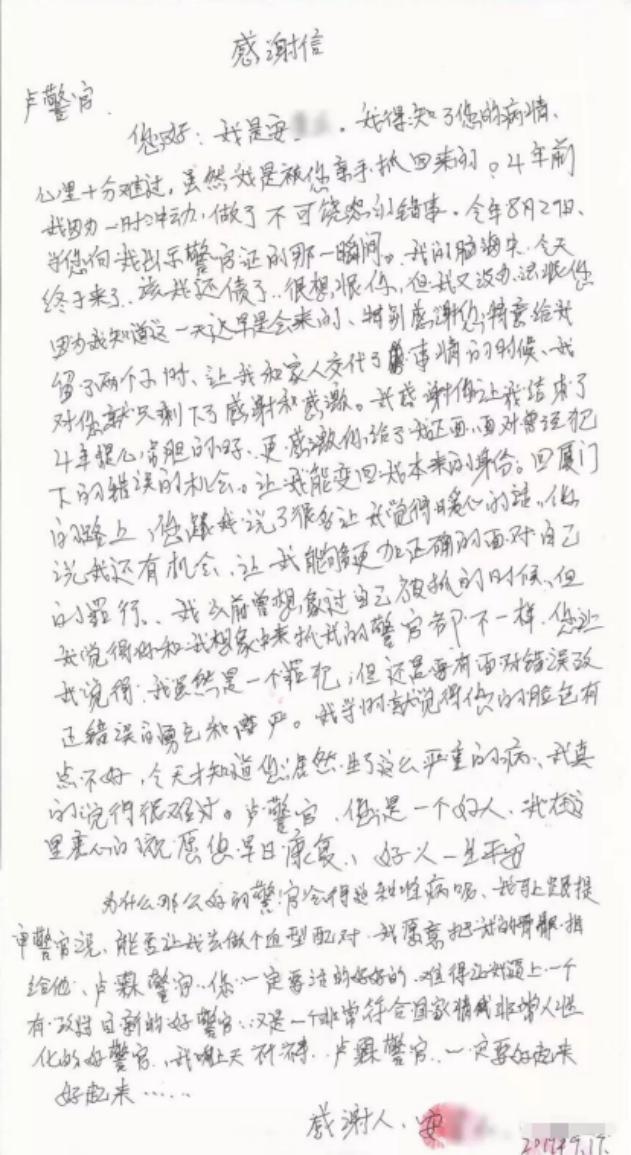 感谢信
卢警官.
您好:我是安 . 我得知了您的病情、
心里十分难过,虽然我是被您亲手抓回来的。4年前
我因为一时冲动,做了不可饶恕的错事.今年8月29日、
当您向我出示警官证的那一瞬间。我的脑海中、今天
终于来了、该我还债了、很想恨你,但我又没办法恨您
因为我知道这一天迟早是会来的、特别感谢您特意给我
留了两个小时、让我和家人交代了 事情的时候、我
对您就只剩下了感谢和感激。我感谢您让我结束了
4年提心吊胆的日子、更感激你给了我正面、面对曾经犯
下的错误的机会。让我能变回我本来的身份。回厦门
的路上,您跟我说了很多让我觉得暖心的话、你
说我还有机会、让我能够更加正确的面对自己
的罪行、我以前曾想象过自己被抓的时候、但
我觉得你和我想象中来抓我的警官都不一样、您让
我觉得:我虽然是一个罪犯,但还是要有面对错误改
正错误的勇气和尊严。我当时就觉得你的脸色有
点不好,今天才知道您居然生了这么严重的病、我真
的觉得很难过。卢警官、您是一个好人、我在这
里衷心的祝愿您早日康复、好人一生平安
为什么那么好的警官会得这种病呢、我马上跟提
审警官说、能否让我去做个血型配对、我愿意把我的骨髓捐
给他、卢霖警官、你一定要活的好好的、难得让我碰上一个
有 的好警官、又是一个非常符合国家 非常人性
化的好警官、我 上天祈祷、卢霖警官、一定要好起来
好起来……
感谢人、安
2017.9.17.